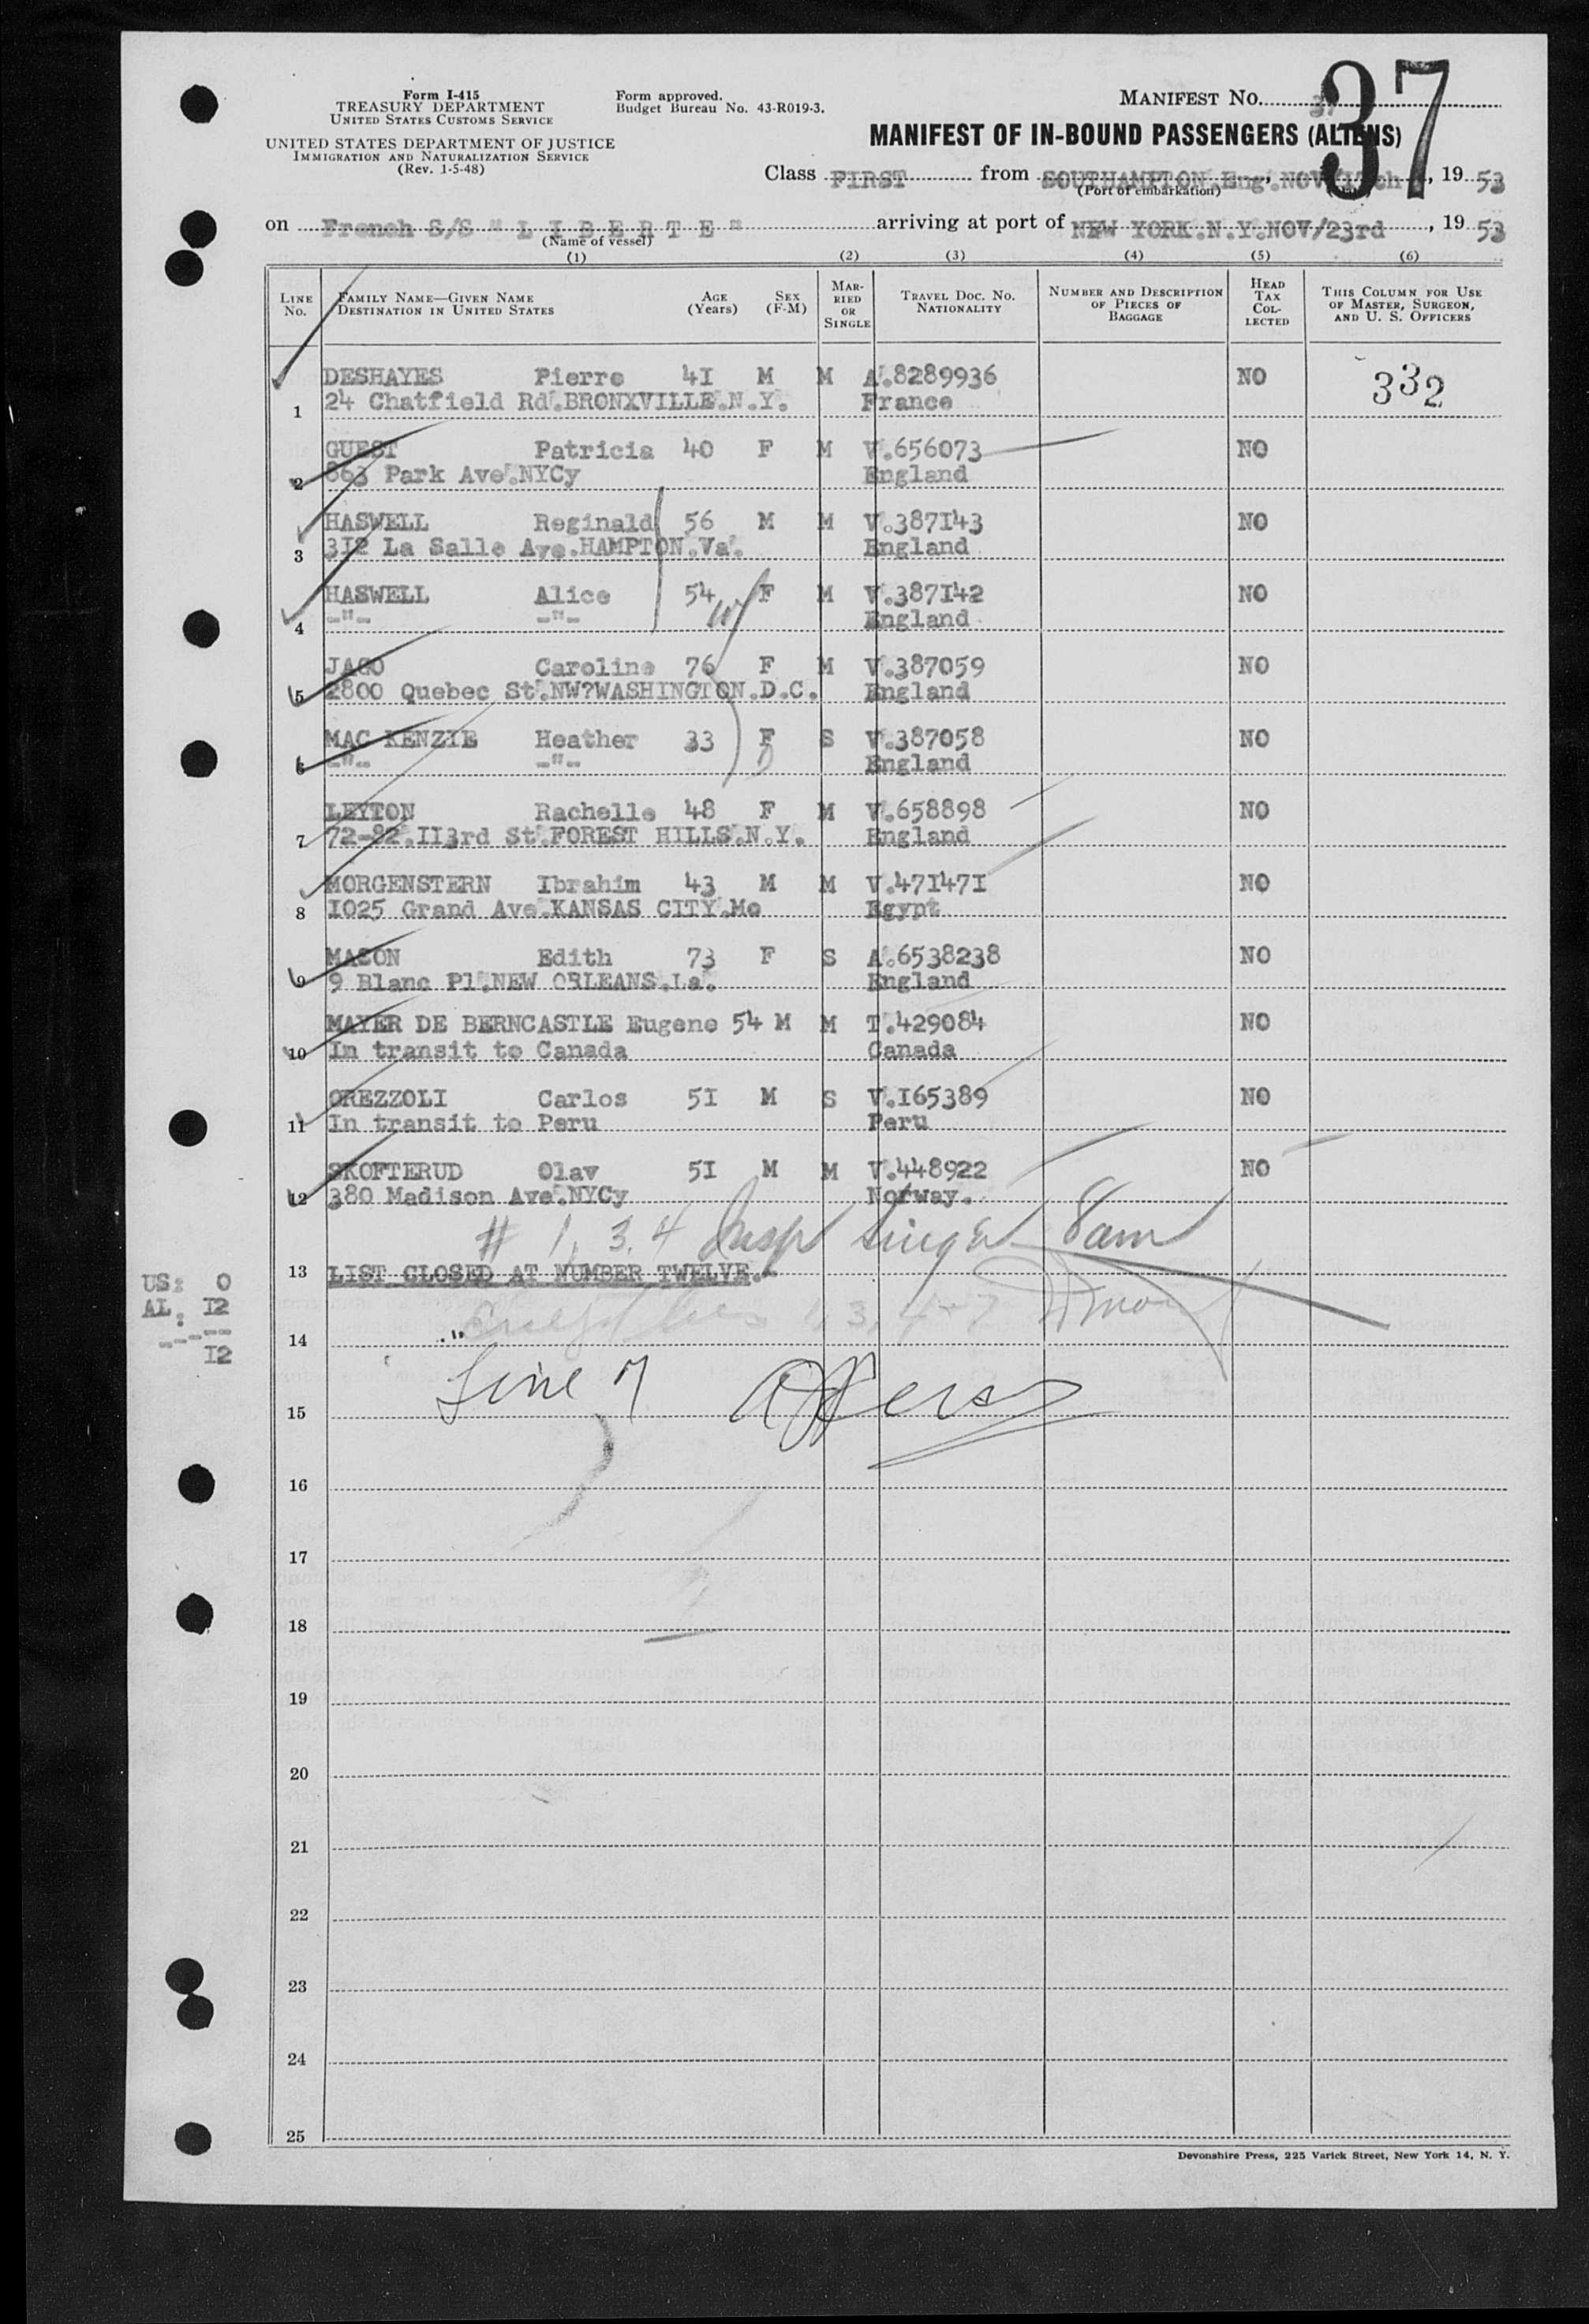 Form I-415
TREASURY DEPARTMENT
UNITED STATES CUSTOMS SERVICE
UNITED STATES DEPARTMENT OF JUSTICE
IMMIGRATION AND NATURALIZATION SERVICE
(Rev. 1-5-48)
Form approved.
Budget Bureau No. 43-R019-3.
MANIFEST No. 37
37
MANIFEST OF IN-BOUND PASSENGERS (ALIENS)
Class FIRST from SOUTHAMPTON.Eng.NOV , 19 53
(Port of embarkation)
on French S/S " L I B E R T E " arriving at port of NEW YORK.N.Y.NOV/23rd , 19 53
(Name of vessel)
(1) (2) (3) (4) (5) (6)
LINE No.
FAMILY NAME—GIVEN NAME
DESTINATION IN UNITED STATES
AGE (Years)
SEX (F-M)
MARRIED OR SINGLE
TRAVEL DOC. NO.
NATIONALITY
NUMBER AND DESCRIPTION OF PIECES OF BAGGAGE
HEAD TAX COLLECTED
THIS COLUMN FOR USE OF MASTER, SURGEON, AND U. S. OFFICERS
DESHAYES Pierre 4I M M A.8289936 NO 332
1 24 Chatfield Rd.BRONXVILLE.N.Y. France
GUEST Patricia 40 F M V.656073 NO
2 863 Park Ave.NYCy England
HASWELL Reginald 56 M M V.387I43 NO
3 3I2 La Salle Ave.HAMPTON.Va. England
HASWELL Alice 54 F M V.387I42 NO
4 -"- -"- England
JAGO Caroline 76 F M V.387059 NO
5 2800 Quebec St.NW?WASHINGTON.D.C. England
MAC KENZIE Heather 33 F S V.387058 NO
6 -"- -"- England
LEYTON Rachelle 48 F M V.658898 NO
7 72-82.II3rd St.FOREST HILLS.N.Y. England
MORGENSTERN Ibrahim 43 M M V.47I47I NO
8 I025 Grand Ave.KANSAS CITY.Mo Egypt
MASON Edith 73 F S A.6538238 NO
9 9 Blanc Pl.NEW ORLEANS.La. England
MAYER DE BERNCASTLE Eugene 54 M M T.429084 NO
10 In transit to Canada Canada
OREZZOLI Carlos 5I M S V.I65389 NO
11 In transit to Peru Peru
SKOFTERUD Olav 5I M M V.448922 NO
12 380 Madison Ave.NYCy Norway.
# 1, 3, 4 Insp 8am
13 LIST CLOSED AT NUMBER TWELVE.-
US: 0
AL: I2
-----
I2
14 1, 3, 4
15 Line 7
16
17
18
19
20
21
22
23
24
25
Devonshire Press, 225 Varick Street, New York 14, N. Y.